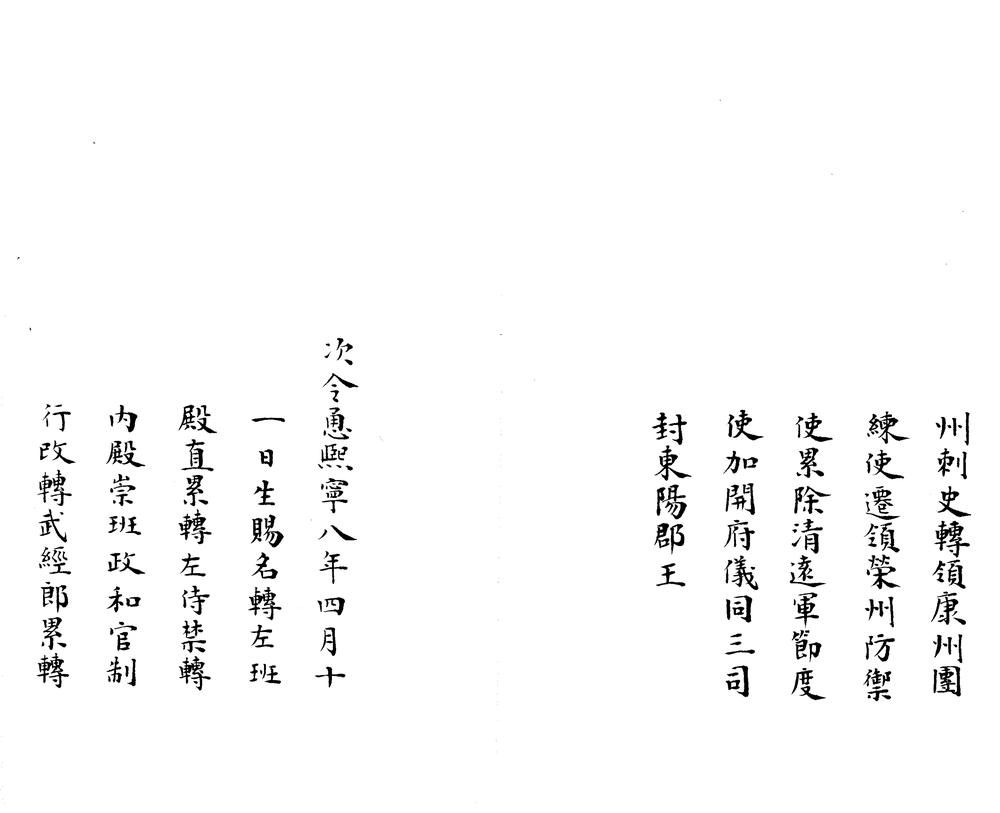 州刺史轉領康州團
練使遷領榮州防禦
使累除清遠軍節度
使加開府儀同三司
封東陽郡王
次令恿熙寧八年四月十
一日生賜名轉左班
殿直累轉左侍禁轉
內殿崇班政和官制
行改轉武經郎累轉